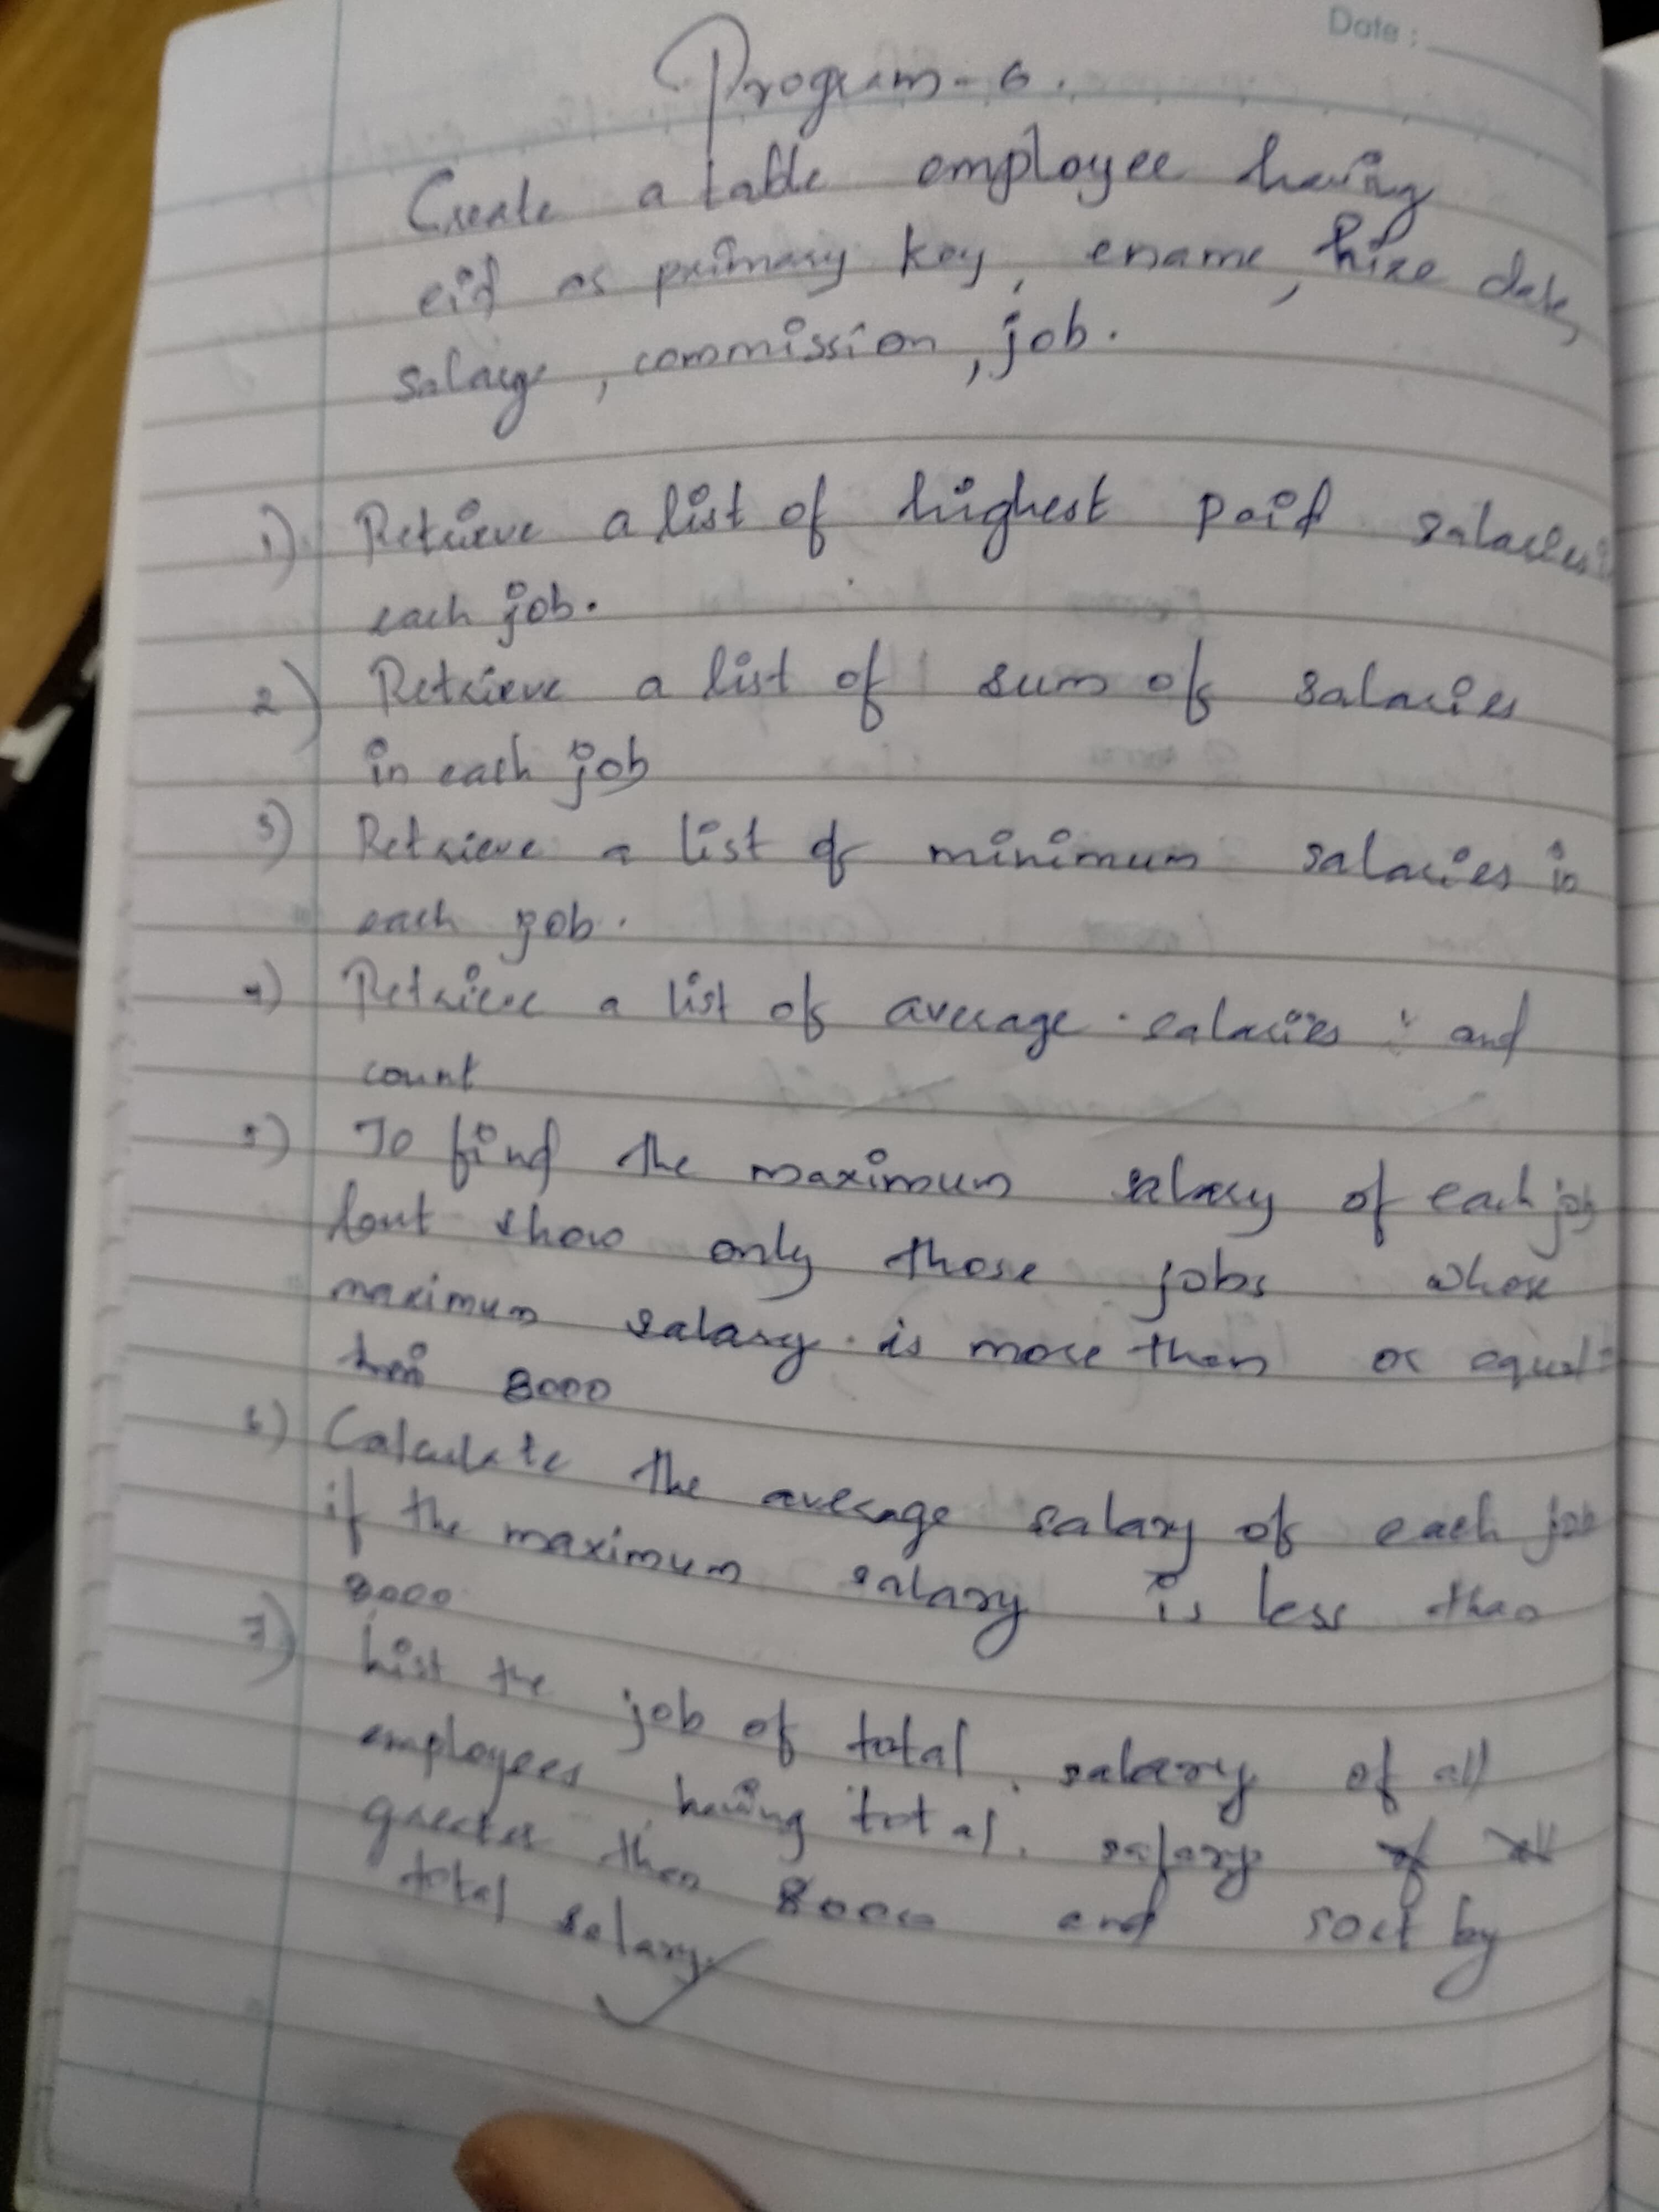 Date :
Program - 6.
Create a table employee having
eid as primary key, ename, hire date,
salary, commission, job.
1) Retrieve a list of highest paid salaries
each job.
2) Retrieve a list of sum of salaries
in each job
3) Retrieve a list of minimum salaries in
each job.
4) Retrieve a list of average salaries and
count
5) To find the maximum salary of each job
but show only those jobs whose
maximum salary is more than or equal
8000
6) Calculate the average salary of each job
if the maximum salary is less than
8000
7) List the job of total salary of all
employees having total salary of all
greater than 8000 and sort by
total salary.